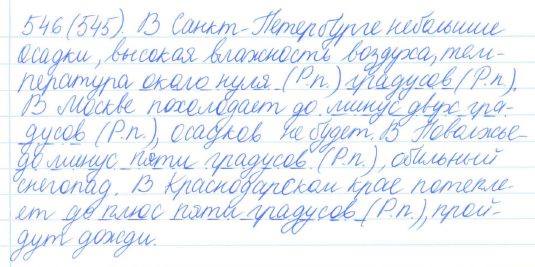 546(545). В Санкт-Петербурге небольшие
осадки, высокая влажность воздуха, тем-
пература около нуля (Р.п.) градусов (Р.п.).
В Москве похолодает до минус двух гра-
дусов (Р.п.), осадков не будет. В Поволжье-
до минус пяти градусов (Р.п.), обильный
снегопад. В Краснодарском крае потепле-
ет до плюс пяти градусов (Р.п.), прой-
дут дожди.